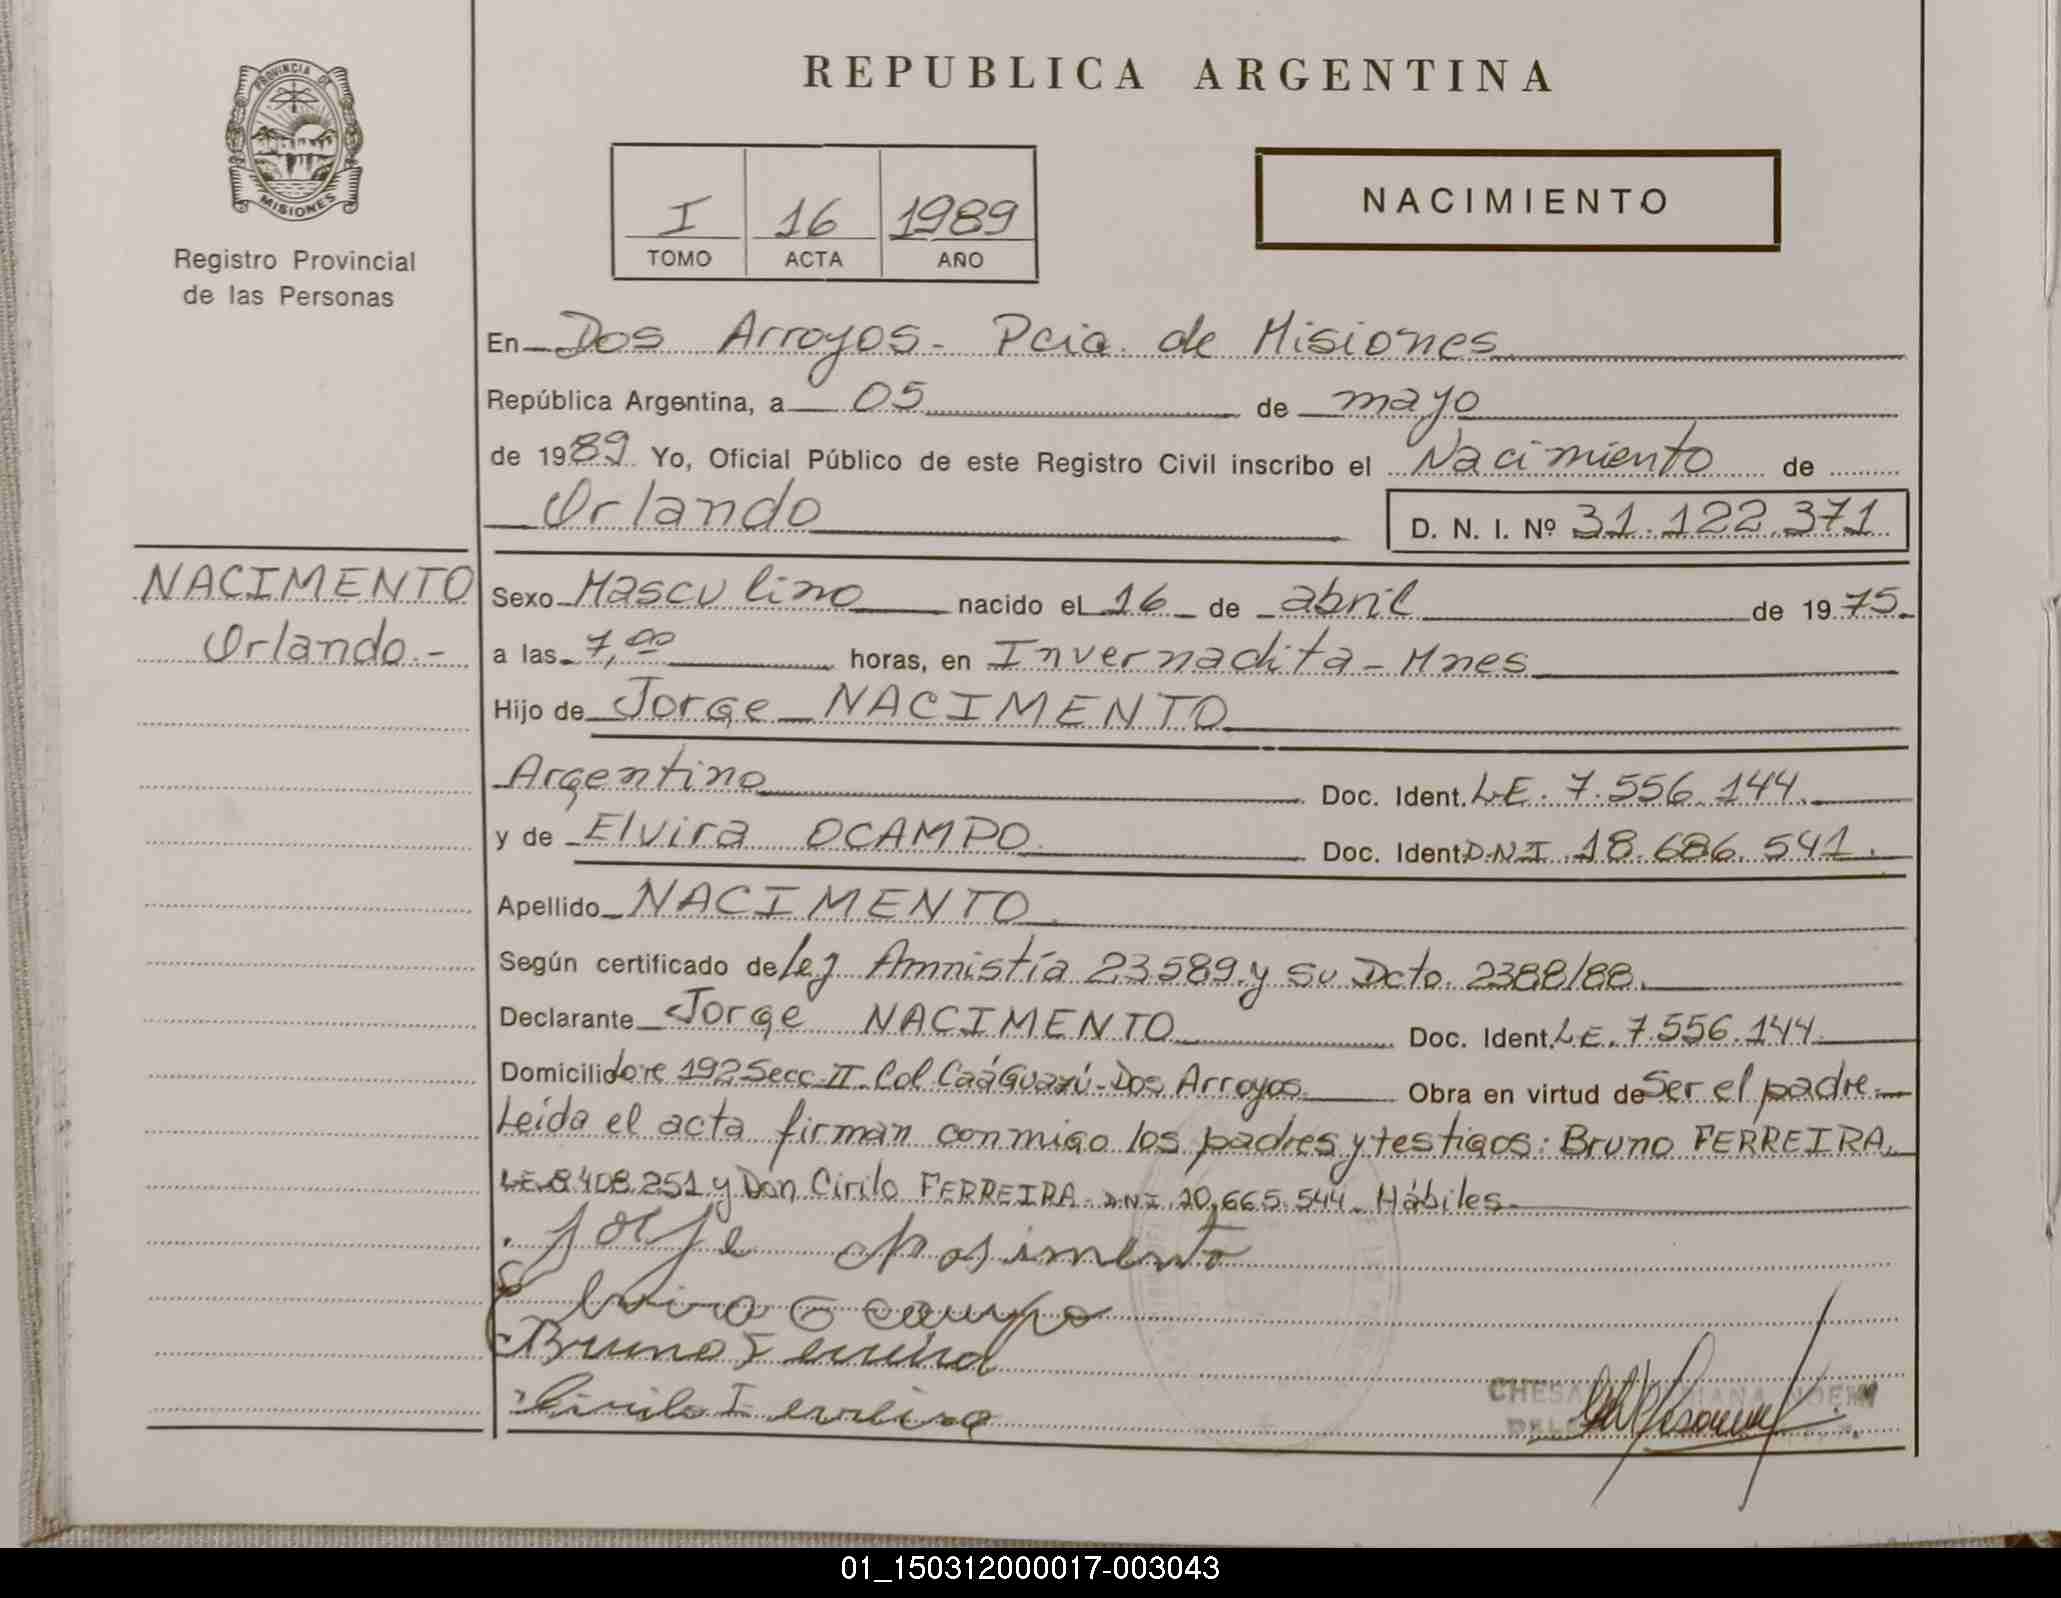 PROVINCIA DE
MISIONES
Registro Provincial
de las Personas
REPUBLICA ARGENTINA
I 16 1989
TOMO ACTA AÑO
NACIMIENTO
En Dos Arroyos - Pcia. de Misiones
República Argentina, a 05 de mayo
de 1989 Yo, Oficial Público de este Registro Civil inscribo el Nacimiento de
Orlando D. N. I. Nº 31.122.371
NACIMENTO
Orlando.-
Sexo Masculino nacido el 16 de abril de 1975.
a las 7,00 horas, en Invernadita - Mnes
Hijo de Jorge NACIMENTO
Argentino Doc. Ident. L.E. 7.556.144.
y de Elvira OCAMPO Doc. Ident. D.N.I. 18.686.541.
Apellido NACIMENTO
Según certificado de ley Amnistía 23.589 y su Dcto. 2388/88.
Declarante Jorge NACIMENTO Doc. Ident. L.E. 7.556.144.
Domicilio lote 192 Secc. II Col. Caá Guazú - Dos Arroyos Obra en virtud de Ser el padre.
Leída el acta firman conmigo los padres y testigos: Bruno FERREIRA
L.E. 8.408.251 y Don Cirilo FERREIRA D.N.I. 20.665.544. Hábiles.
Jorge Nasimento
Elvira Ocampo
Bruno Ferreira
Cirilo Ferreira
01_150312000017-003043